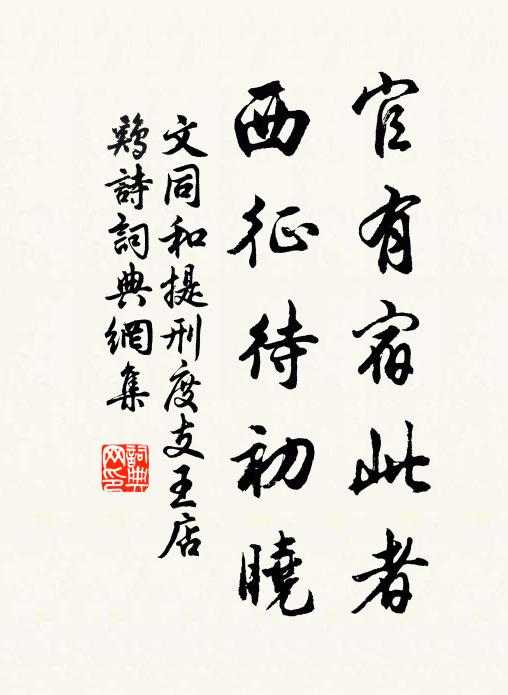 官有宿此者
西征待初曉
文同和提刑度支王店
鷄詩詞典網集
詞典
网印